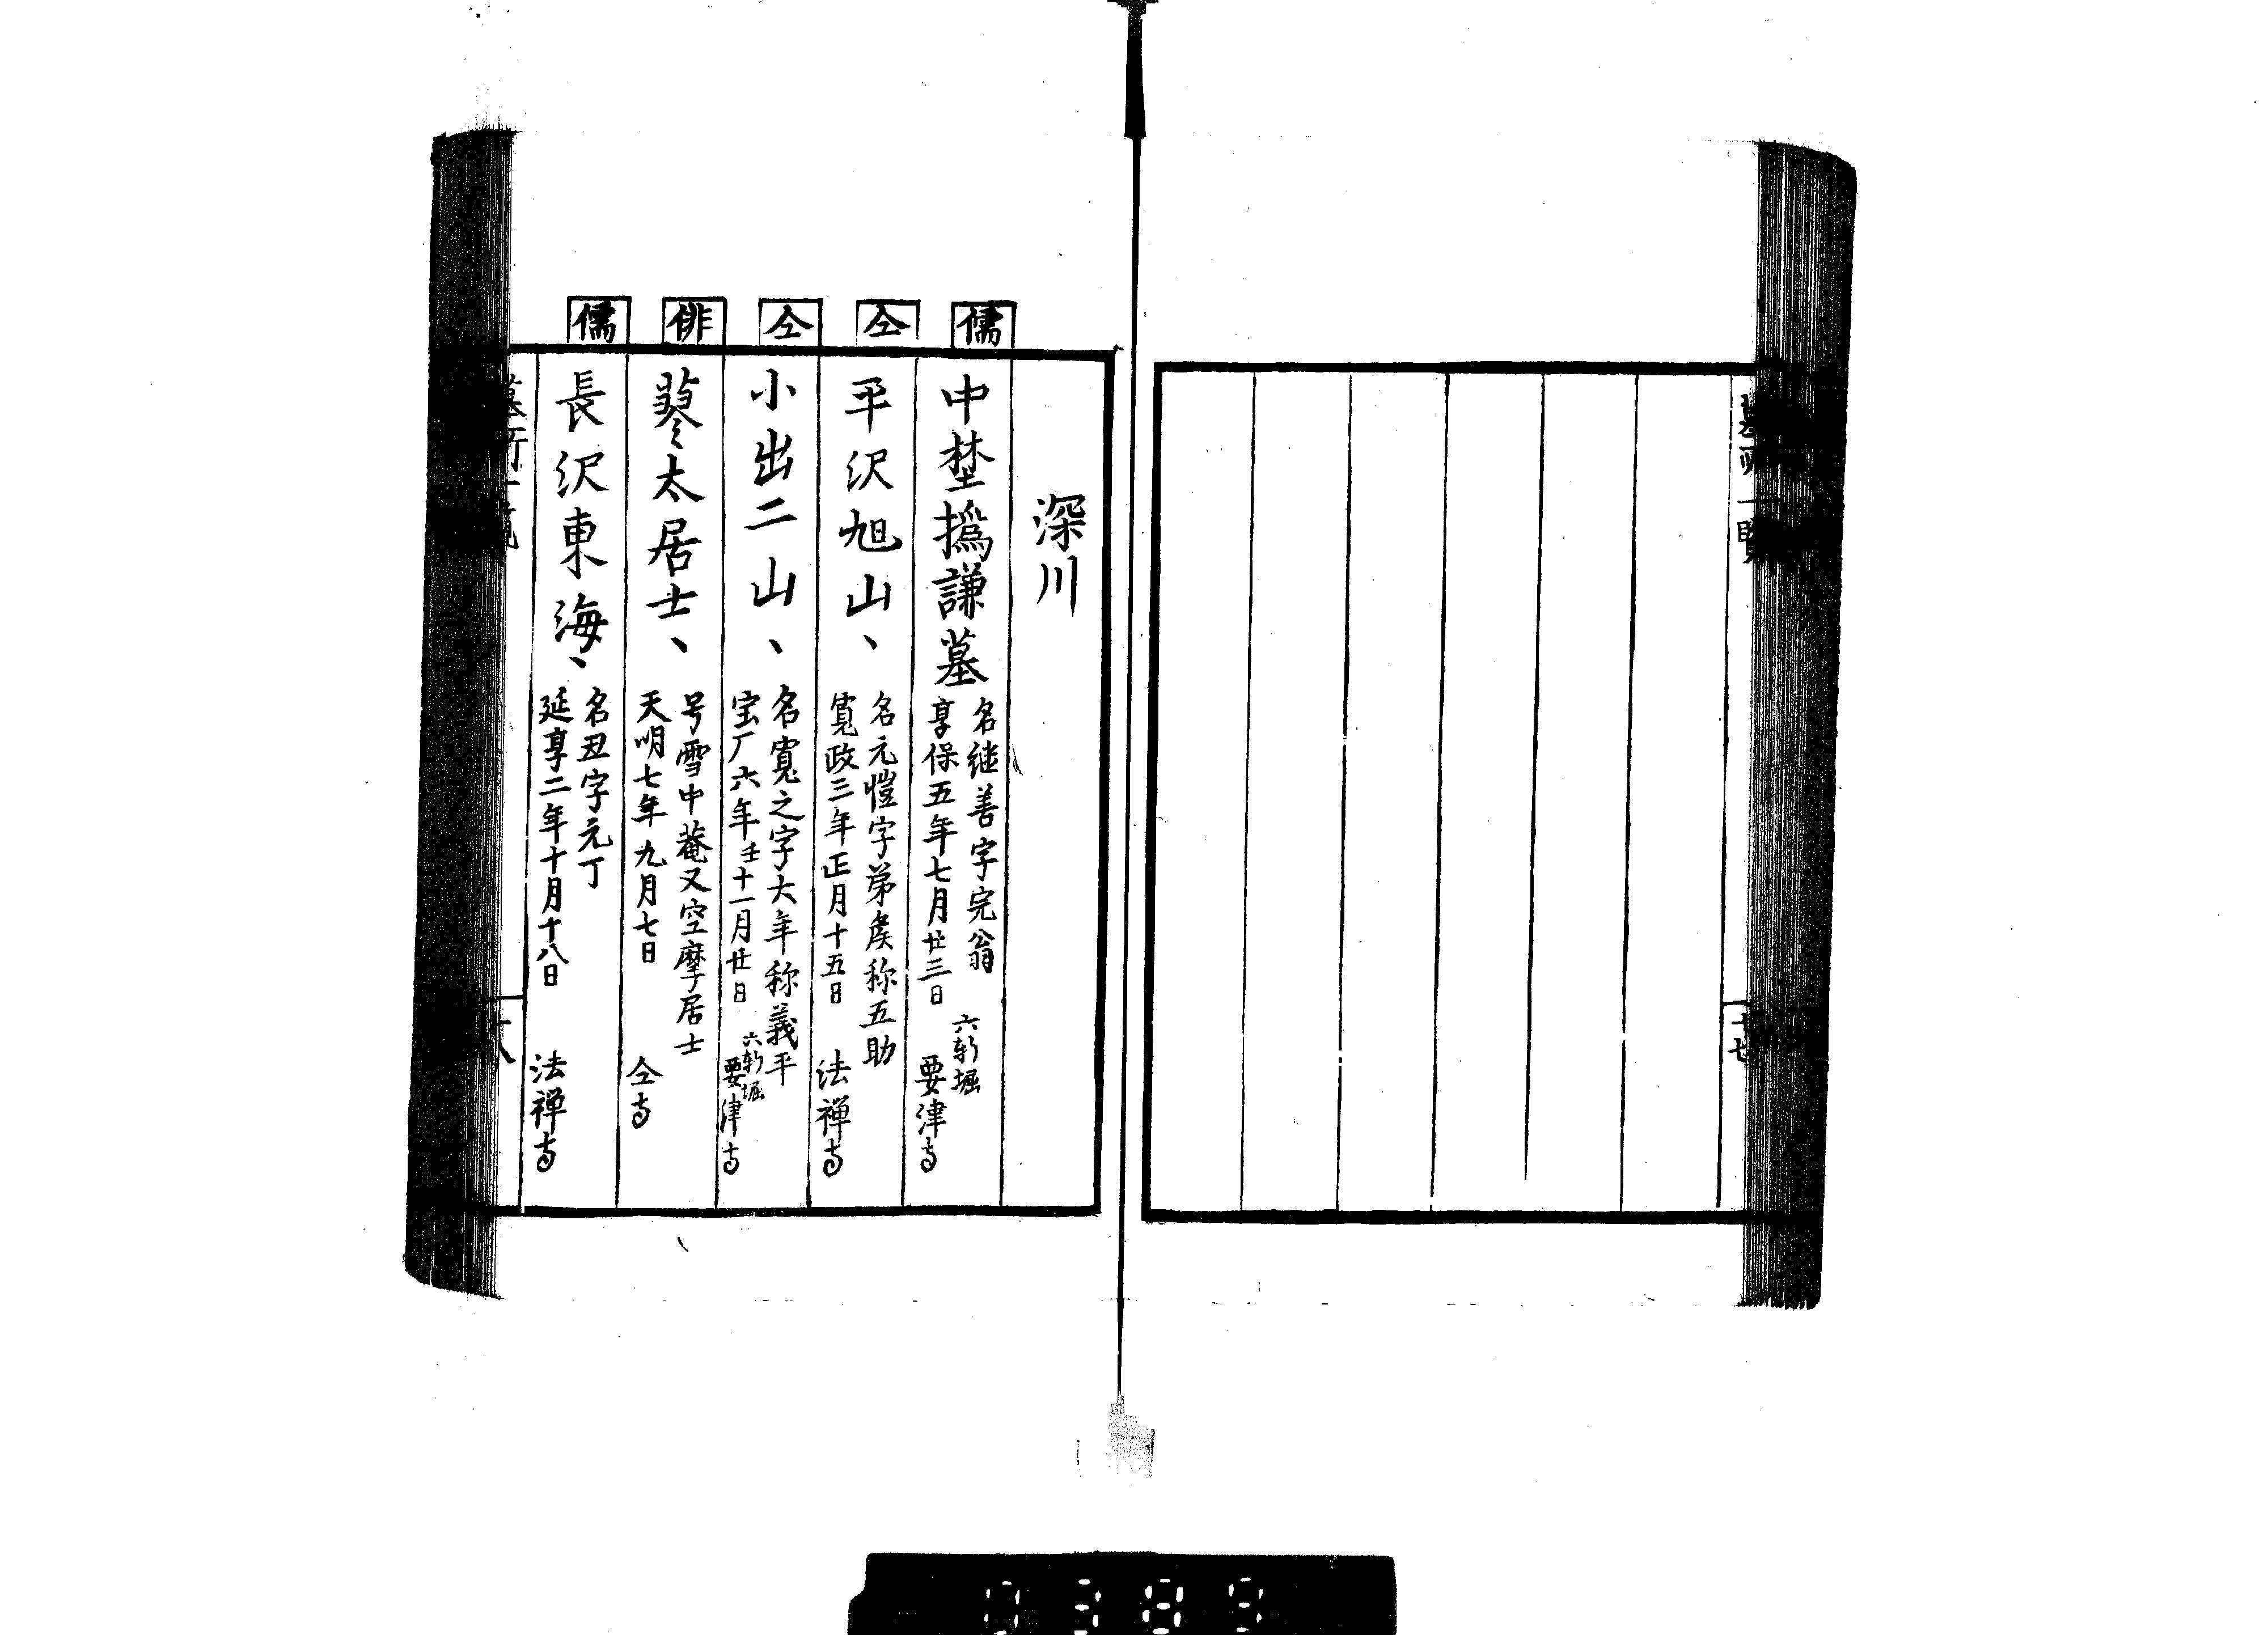 墓所一覧
十七
深川
儒
中埜撝謙墓
名継善字完翁
享保五年七月廿三日
六軒堀
要津寺
仝
平沢旭山〻
名元愷字弟矦称五助
寛政三年正月十五日
法禅寺
仝
小出二山〻
名寛之字大年称義平
宝厂六年壬十一月廿日
六軒堀
要津寺
俳
蓼太居士〻
号雪中菴又空摩居士
天明七年九月七日
仝寺
儒
長沢東海〻
名丑字元丁
延享二年十月十八日
法禅寺
墓所一覧
十八